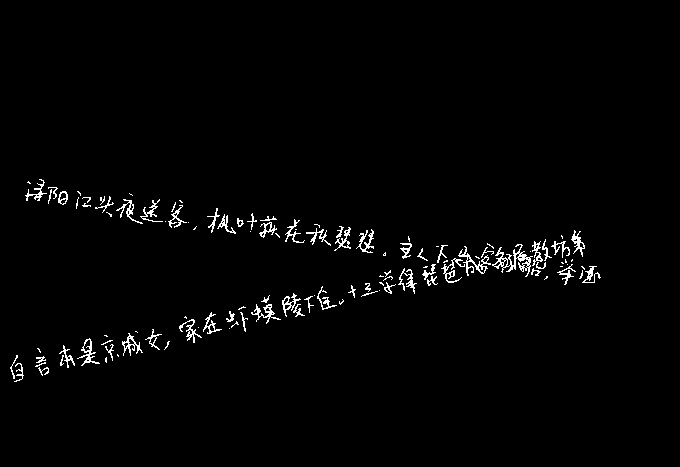 浔阳江头夜送客,枫叶荻花秋瑟瑟。主人下,举
自言本是京城女,家在虾蟆陵下住。十三学得琵琶教坊第